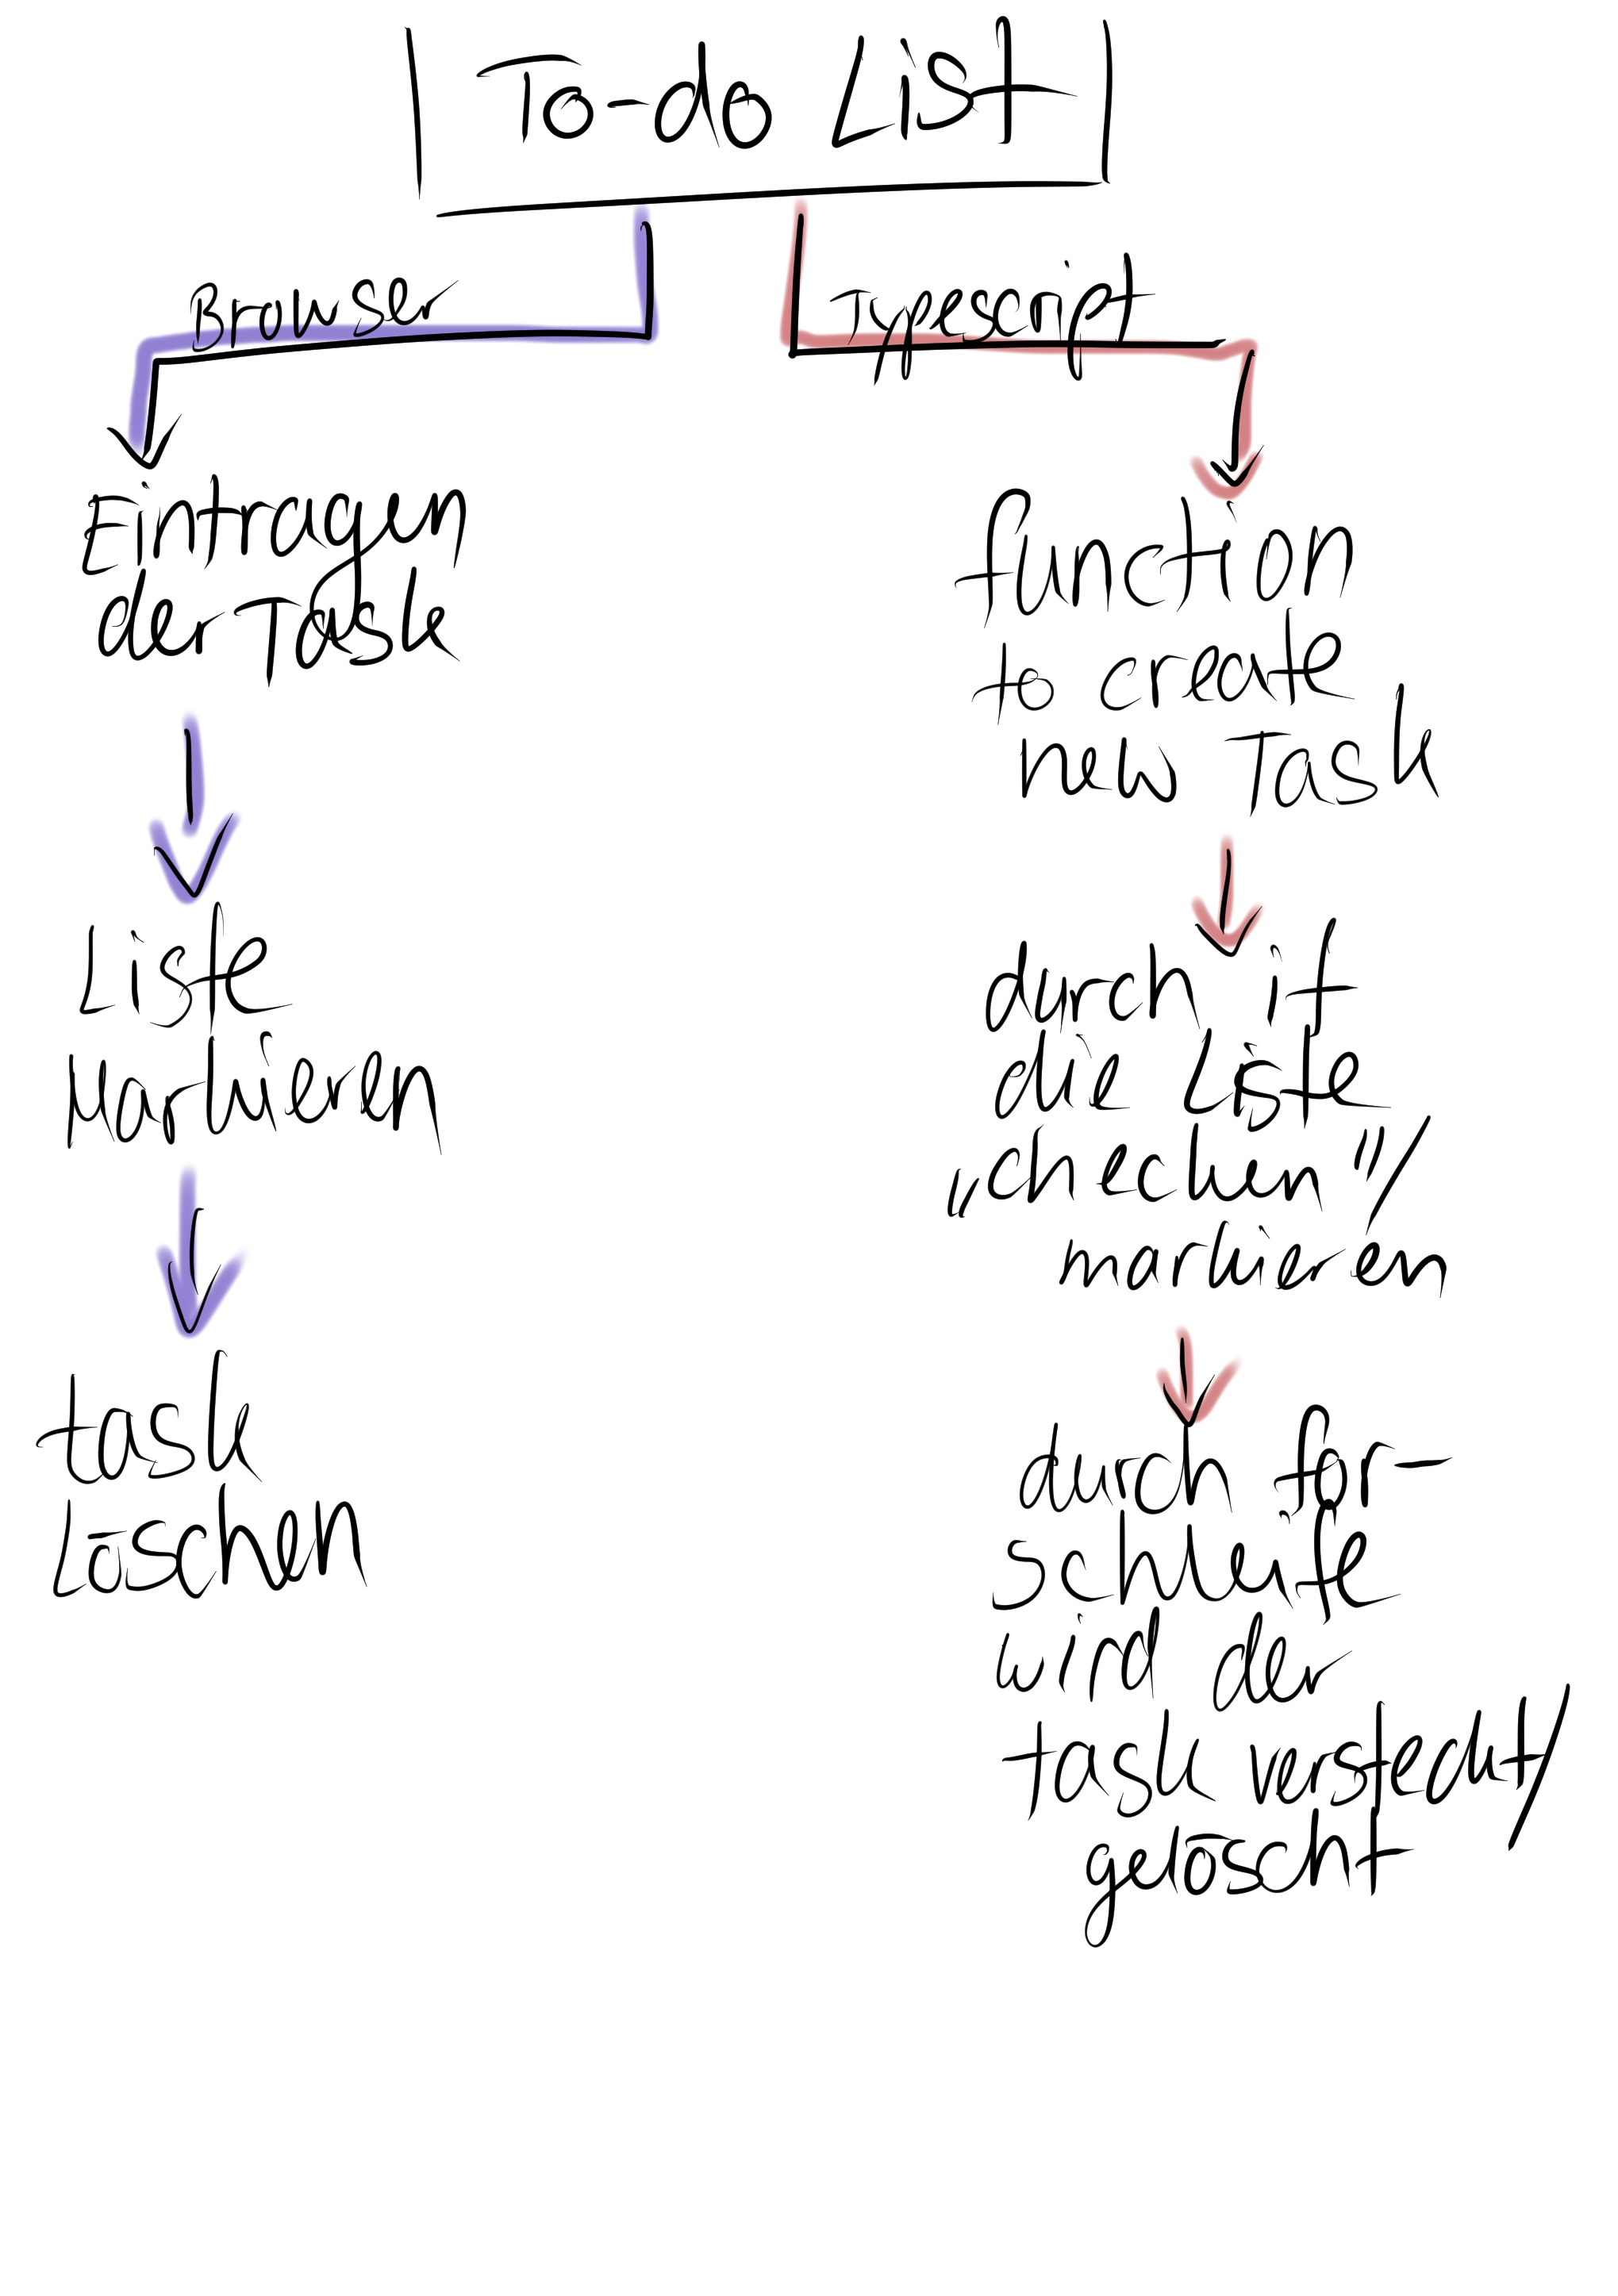 To-do List
Browser
Eintragen
der Task
Liste
Markieren
task
Löschen
Typescript
function
to create
new Task
durch if
die Liste
„checken"/
markieren
durch for-
schleife
wird der
task versteckt/
gelöscht